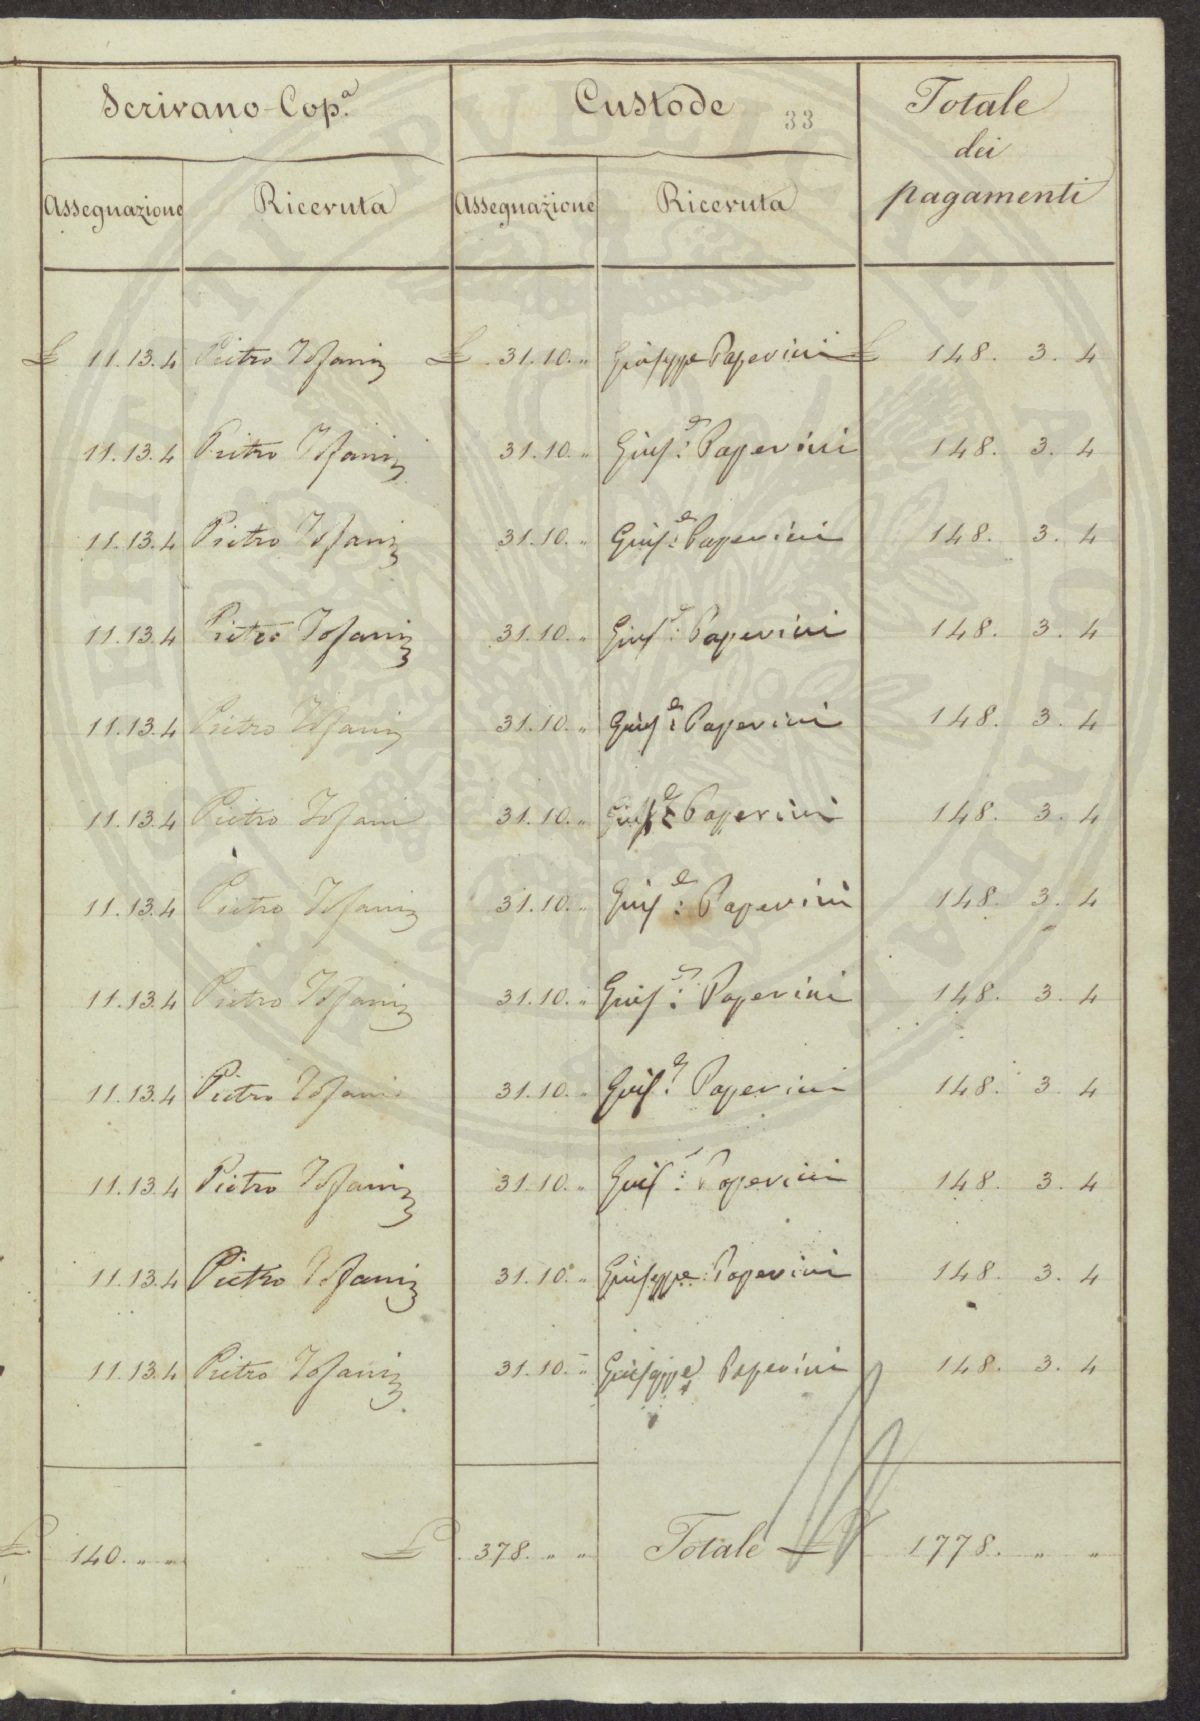 Scrivano Cop.ª Custode 33 Totale
dei
pagamenti
Assegnazione Ricevuta Assegnazione Ricevuta
£ 11.13.4 Pietro £ 31.10.„ Giuseppe Papervini £ 148. 3. 4
11.13.4 Pietro 31.10.„ Gius.e Papervini 148. 3. 4
11.13.4 Pietro 31.10.„ Gius.e Papervini 148. 3. 4
11.13.4 Pietro 31.10.„ Gius.e Papervini 148. 3. 4
11.13.4 Pietro 31.10.„ Gius.e Papervini 148. 3. 4
11.13.4 Pietro 31.10.„ Gius.e Papervini 148. 3. 4
11.13.4 Pietro 31.10.„ Gius.e Papervini 148. 3. 4
11.13.4 Pietro 31.10.„ Gius.e Papervini 148. 3. 4
11.13.4 Pietro 31.10.„ Gius.e Papervini 148. 3. 4
11.13.4 Pietro 31.10.„ Gius.e Papervini 148. 3. 4
11.13.4 Pietro 31.10.„ Giuseppe Papervini 148. 3. 4
11.13.4 Pietro 31.10.„ Giuseppe Papervini 148. 3. 4
£ 140. „ „ £ 378. „ „ Totale £ 1778. „ „